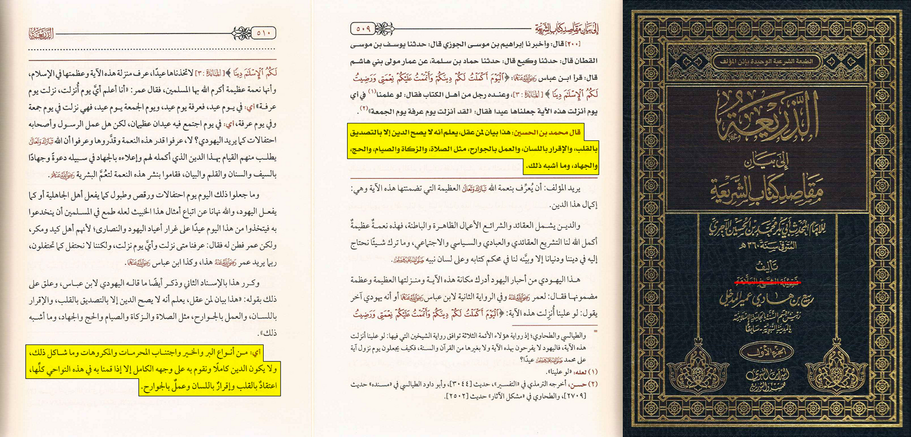 ٥٠٩
إلى بيان مقاصد كتاب الشريعة
[٢٠٠] قال: وأخبرنا إبراهيم بن موسى الجوزي قال: حدثنا يوسف بن موسى
القطان قال: حدثنا وكيع قال: حدثنا حماد بن سلمة، عن عمار مولى بني هاشم
قال: قرأ ابن عباس رضي الله عنهما: ﴿ٱلْيَوْمَ أَكْمَلْتُ لَكُمْ دِينَكُمْ وَأَتْمَمْتُ عَلَيْكُمْ نِعْمَتِى وَرَضِيتُ
لَكُمُ ٱلْإِسْلَٰمَ دِينًا﴾ [المائدة: ٣]، وعنده رجل من أهل الكتاب فقال: لو علمنا(١) في أي
يوم أنزلت هذه الآية جعلناها عيدا؛ فقال: «لقد أنزلت يوم عرفة يوم الجمعة»(٢).
قال محمد بن الحسين: هذا بيان لمن عقل، يعلم أنه لا يصح الدين إلا بالتصديق
بالقلب، والإقرار باللسان، والعمل بالجوارح، مثل الصلاة، والزكاة والصيام، والحج،
والجهاد، وما أشبه ذلك.
يريد المؤلف: أن يُعرِّف بنعمة الله تبارك وتعالى العظيمة التي تضمنتها هذه الآية وهي:
إكمال هذا الدين.
والدين يشمل العقائد والشرائع الأعمال الظاهرة والباطنة، فهذه نعمةٌ عظيمةٌ
أكمل الله لنا التشريع العقائدي والعبادي والسياسي والاجتماعي، وما ترك شيئًا نحتاج
إليه في ديننا ودنيانا إلا وبيَّنه لنا في محكم كتابه وعلى لسان نبيه
هذا اليهودي من أحبار اليهود أدرك مكانة هذه الآية ومنزلتها العظيمة وعظمة
مضمونها فقال: لعمر رضي الله عنه وفي الرواية الثانية لابن عباس أو أنه يهودي آخر
يقول: لو علينا أُنزِلت هذه الآية: ﴿ٱلْيَوْمَ أَكْمَلْتُ لَكُمْ دِينَكُمْ وَأَتْمَمْتُ عَلَيْكُمْ نِعْمَتِى وَرَضِيتُ
والطيالسي والطحاوي؛ إذ رواية هؤلاء الأئمة الثلاثة توافق رواية الشيخين التي فيها: لو علينا أنزلت
هذه الآية، فاليهود لا يفرحون بهذه الآية ولا بغيرها من القرآن والسنة، فكيف يجعلون يوم نزول آية
على محمد عيدًا؟
(١) لعله: «لو علينا».
(٢) حسن، أخرجه الترمذي في «التفسير»، حديث [٣٠٤٤]، وأبو داود الطيالسي في «مسنده» حديث
[٢٧٠٩]، والطحاوي في «مشكل الآثار» حديث [٢٥٠٢].
٥١٠
الذريعة
لَكُمُ ٱلْإِسْلَٰمَ دِينًا﴾ [المائدة: ٣] لاتخذناها عيدًا، عرف منزلة هذه الآية وعظمتها في الإسلام
وأنها نعمة عظيمة أكرم الله بها المسلمين، فقال عمر: «أنا أعلم أيَّ يوم أُنزلت، نزلت يوم
عرفة» أي: في يوم عيد، فعرفة يوم عيد، ويوم الجمعة يوم عيد، فهي نزلت في يوم جمعة
وفي يوم عرفة، أي: في يوم اجتمع فيه عيدان عظيمان، لكن هل عمل الرسول وأصحابه
احتفالات كما يريد اليهودي؟ لا، عرفوا قدر هذه النعمة وقدَّروها وعرفوا أن الله تبارك وتعالى
يطلب منهم القيام بهذا الدين الذي أكمله لهم وإعلاءه بالجهاد في سبيله دعوةً وجهادًا
بالسيف والسنان والقلم والبيان، فقاموا بنشر هذه النعمة لتعُمَّ البشرية
وما جعلوا ذلك اليوم يوم احتفالات ورقص وطبول كما يفعل أهل الجاهلية أو كما
يفعل اليهود، والله نهانا عن اتباع أمثال هذا الخبيث لعله طمع في المسلمين أن ينخدعوا
به فيتخذوا من هذا اليوم عيدًا على غرار أعياد اليهود والنصارى؛ لأنهم أهل كيد ومكر،
ولكن عمر فطن له فقال: عرفنا متى نزلت وأيَّ يوم نزلت، ولكننا لا نحتفل كما تحتفلون،
ربما يريد عمر رضي الله عنه هذا، وكذا ابن عباس
وكرر هذا بالإسناد الثاني وذكر أيضًا ما قاله اليهودي لابن عباس، وعلق على
ذلك بقوله: «هذا بيان لمن عقل، يعلم أنه لا يصح الدين إلا بالتصديق بالقلب، والإقرار
باللسان، والعمل بالجوارح، مثل الصلاة والزكاة والصيام والحج والجهاد، وما أشبه
ذلك».
أي: من أنواع البر والخير واجتناب المحرمات والمكروهات وما شاكل ذلك،
ولا يكون الدين كاملًا ونقوم به على وجهه الكامل إلا إذا قمنا به في هذه النواحي كلِّها،
اعتقادٌ بالقلب وإقرارٌ باللسان وعملٌ بالجوارح.
الطبعة الشرعية الوحيدة بإذن المؤلف
الذريعة
إلى بيان
مقاصد كتاب الشريعة
للإمام المحدث أبي بكر محمد بن الحسين الآجري
المتوفى سنة ٣٦٠هـ
تأليف
ربيع بن هادي عمير المدخلي
الجزء الأول